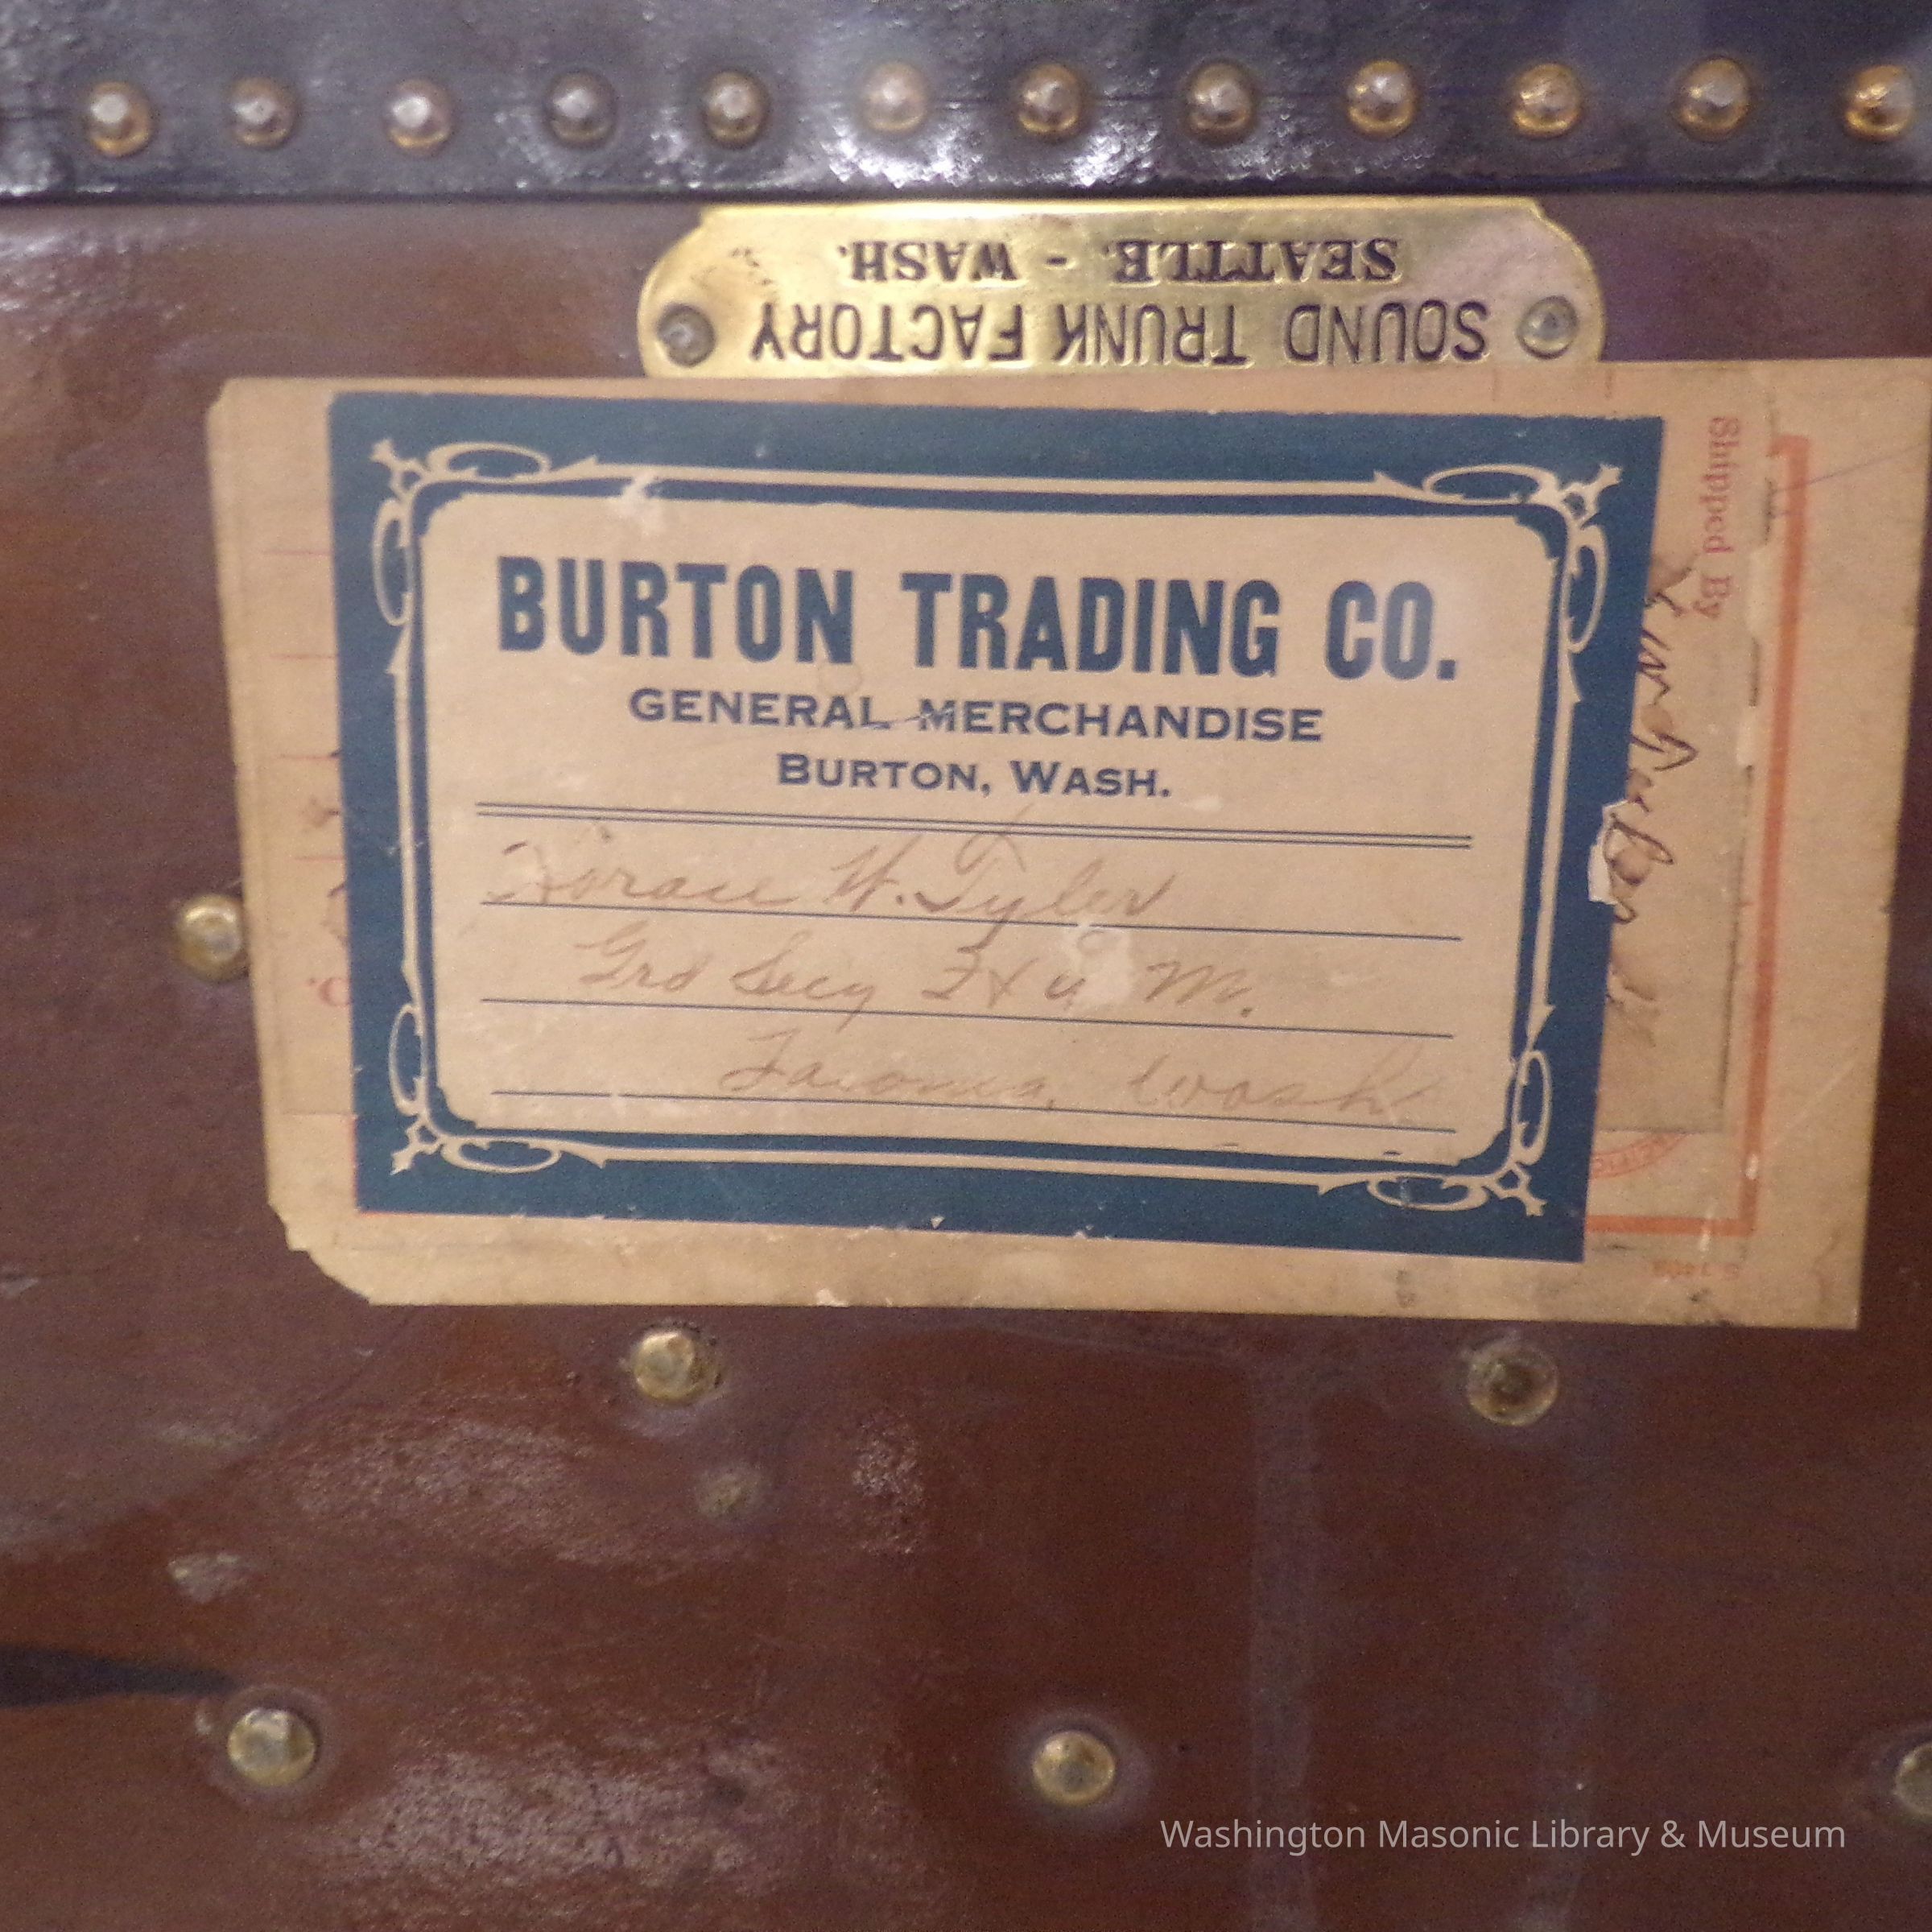 SEATTLE, - WASH.
SOUND TRUNK FACTORY
Shipped By
BURTON TRADING CO.
GENERAL MERCHANDISE
BURTON, WASH.
Horace W. Tyler
Grd Secy F & A M.
Tacoma, Wash
Washington Masonic Library & Museum